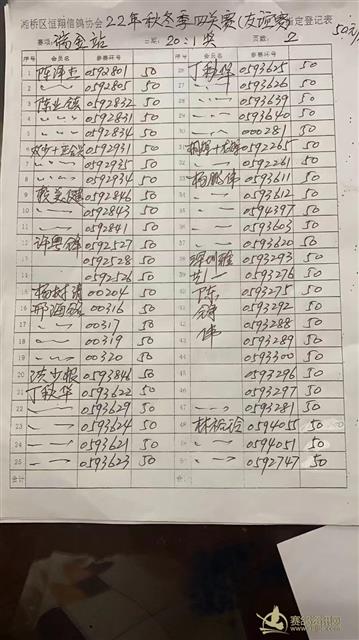 湘桥区恒翔信鸽协会 22年秋冬季四关赛(友谊赛 指定登记表
赛项: 瑞金站 日期: 20:1奖 页数: 2 50元/
序号 会员名 参赛环号 会员名 参赛环号
1 陈泽杰 0592801 50 26 丁秋华 0593625 50
2 〃 0592805 50 27 〃 0593626 50
3 陈业镇 0592832 50 28 〃 0593639 50
4 〃 0592831 50 29 〃 0593640 50
5 〃 0592834 50 30 〃 000281 50
6 0592931 50 31 0592265 50
7 〃 0592935 50 32 〃 0592261 50
8 〃 0592934 50 33 杨鹏伟 0593611 50
9 0592846 50 34 〃 0593612 50
10 〃 0592843 50 35 〃 0594397 50
11 〃 0592841 50 36 〃 0593603 50
12 0592527 50 37 〃 0593620 50
13 0592528 50 38 0593293 50
14 0592526 50 39 0593276 50
15 00204 50 40 陈 0593275 50
16 邢海铭 00316 50 41 0593292 50
17 〃 00317 50 42 伟 0593288 50
18 〃 00319 50 43 0593289 50
19 〃 00320 50 44 0593300 50
20 洪少银 0593846 50 45 0593296 50
21 丁秋华 0593622 50 46 0593297 50
22 〃 0593629 50 47 〃 0593281 50
23 〃 0593624 50 48 0594055 50
24 〃 0593621 50 49 〃 0594051 50
25 〃 0593623 50 50 〃 0592747 50
赛鸽资讯网